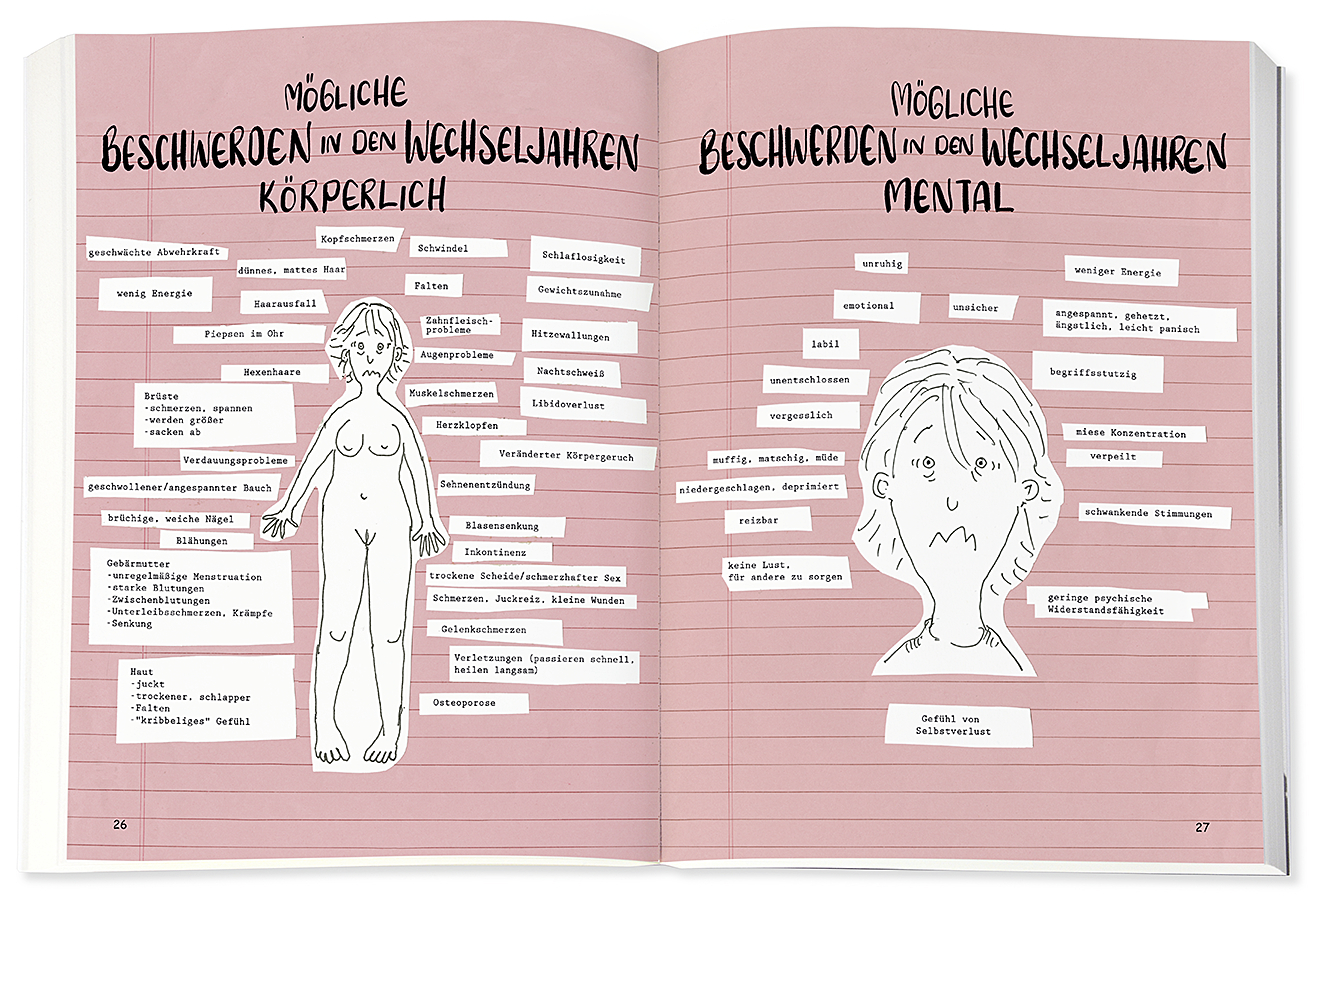 MÖGLICHE
BESCHWERDEN IN DEN WECHSELJAHREN
KÖRPERLICH
geschwächte Abwehrkraft
Kopfschmerzen
Schwindel
Schlaflosigkeit
dünnes, mattes Haar
wenig Energie
Haarausfall
Falten
Gewichtszunahme
Piepsen im Ohr
Zahnfleisch-
probleme
Hitzewallungen
Augenprobleme
Hexenhaare
Nachtschweiß
Brüste
-schmerzen, spannen
-werden größer
-sacken ab
Muskelschmerzen
Libidoverlust
Herzklopfen
Verdauungsprobleme
Veränderter Körpergeruch
geschwollener/angespannter Bauch
Sehnenentzündung
brüchige, weiche Nägel
Blasensenkung
Blähungen
Inkontinenz
Gebärmutter
-unregelmäßige Menstruation
-starke Blutungen
-Zwischenblutungen
-Unterleibsschmerzen, Krämpfe
-Senkung
trockene Scheide/schmerzhafter Sex
Schmerzen, Juckreiz, kleine Wunden
Gelenkschmerzen
Verletzungen (passieren schnell,
heilen langsam)
Haut
-juckt
-trockener, schlapper
-Falten
-"kribbeliges" Gefühl
Osteoporose
26
MÖGLICHE
BESCHWERDEN IN DEN WECHSELJAHREN
MENTAL
unruhig
weniger Energie
emotional
unsicher
angespannt, gehetzt,
ängstlich, leicht panisch
labil
begriffsstutzig
unentschlossen
vergesslich
miese Konzentration
muffig, matschig, müde
verpeilt
niedergeschlagen, deprimiert
reizbar
schwankende Stimmungen
keine Lust,
für andere zu sorgen
geringe psychische
Widerstandsfähigkeit
Gefühl von
Selbstverlust
27